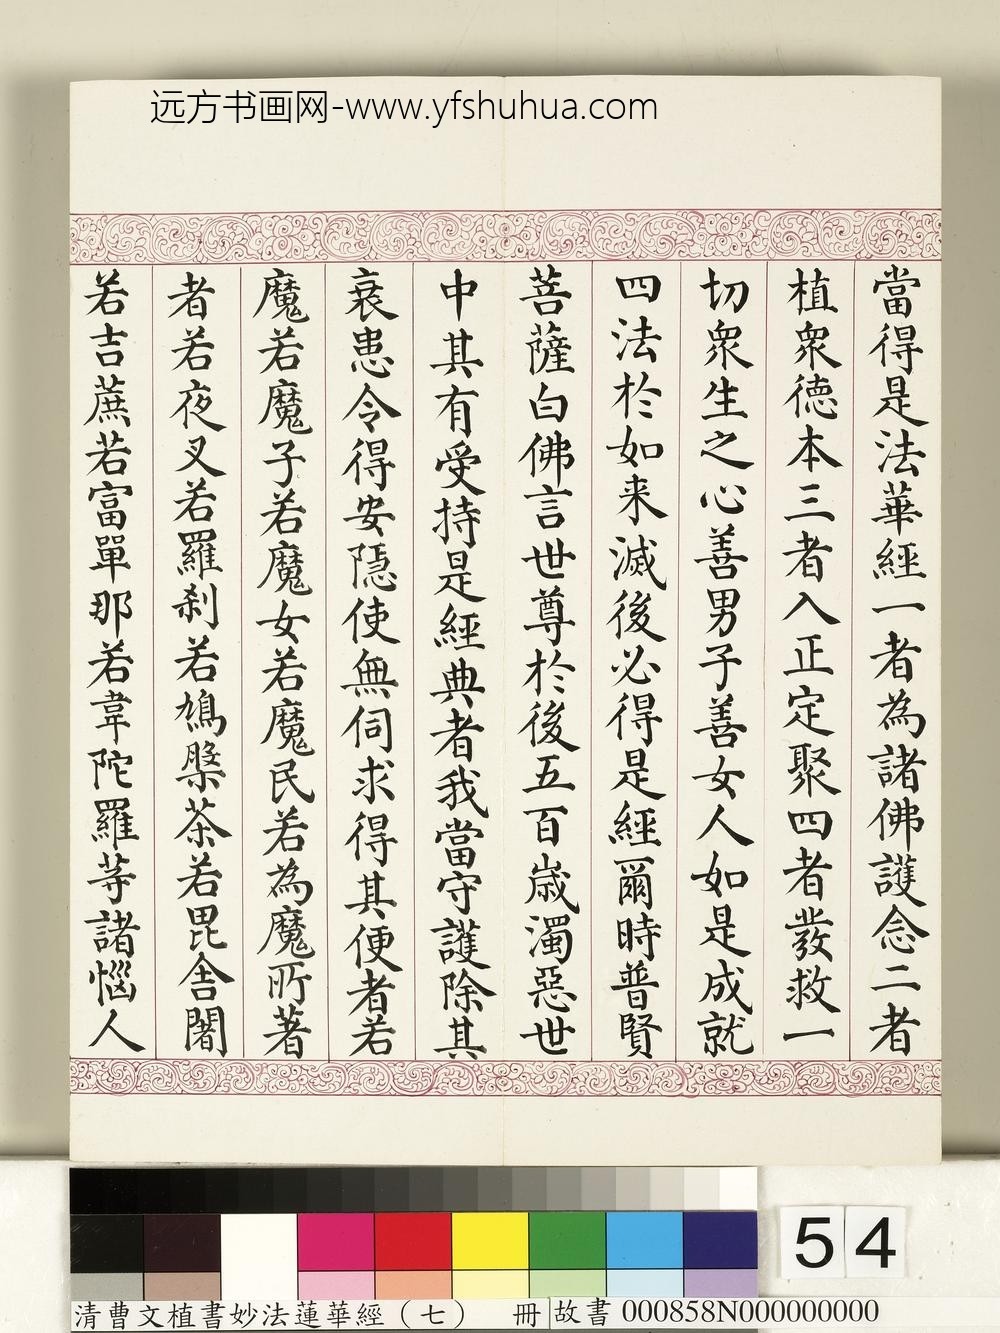 远方书画网-www.yfshuhua.com
當得是法華經一者為諸佛護念二者
植衆德本三者入正定聚四者發救一
切衆生之心善男子善女人如是成就
四法於如来滅後必得是經爾時普賢
菩薩白佛言世尊於後五百歲濁惡世
中其有受持是經典者我當守護除其
衰患令得安隱使無伺求得其便者若
魔若魔子若魔女若魔民若為魔所著
者若夜叉若羅剎若鳩槃茶若毘舍闍
若吉蔗若富單那若韋陀羅等諸惱人
54
清曹文植書妙法蓮華經（七） 冊 故書 000858N000000000